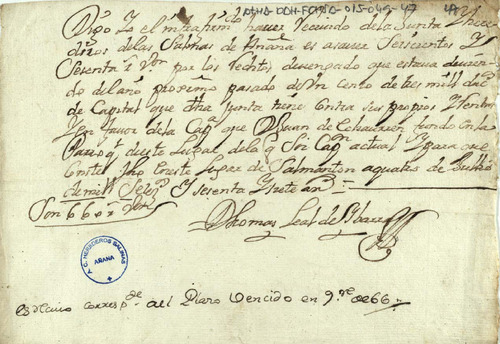 DHA-DDH-FONDO-015-049-47 47
Digo Yo el infra firmdo haver recivido de la Junta y here
deros de las Salinas de Anana es a saver Seiscientos y
Sesenta rs Von por los reditos devengado que estava devien
do del año proximo pasado de Un Censo de tres mill duc
de Capital que dha Junta tiene Contra sus propios y rentas
y a favor de la Capa que Dn Juan de fundo en la
Parroql de este Lugar de la q Soi Capn actual y para que
Conste firmo en este Lugar de Salmanton a quatro de
de mill Seteos y Sesenta y Siete años
Son 660 rs Von
Thomas Leal de Ybarra
T. C. HEREDEROS SALINAS
AÑANA
es Recivo correspte al Plazo Vencido en 9re de 66